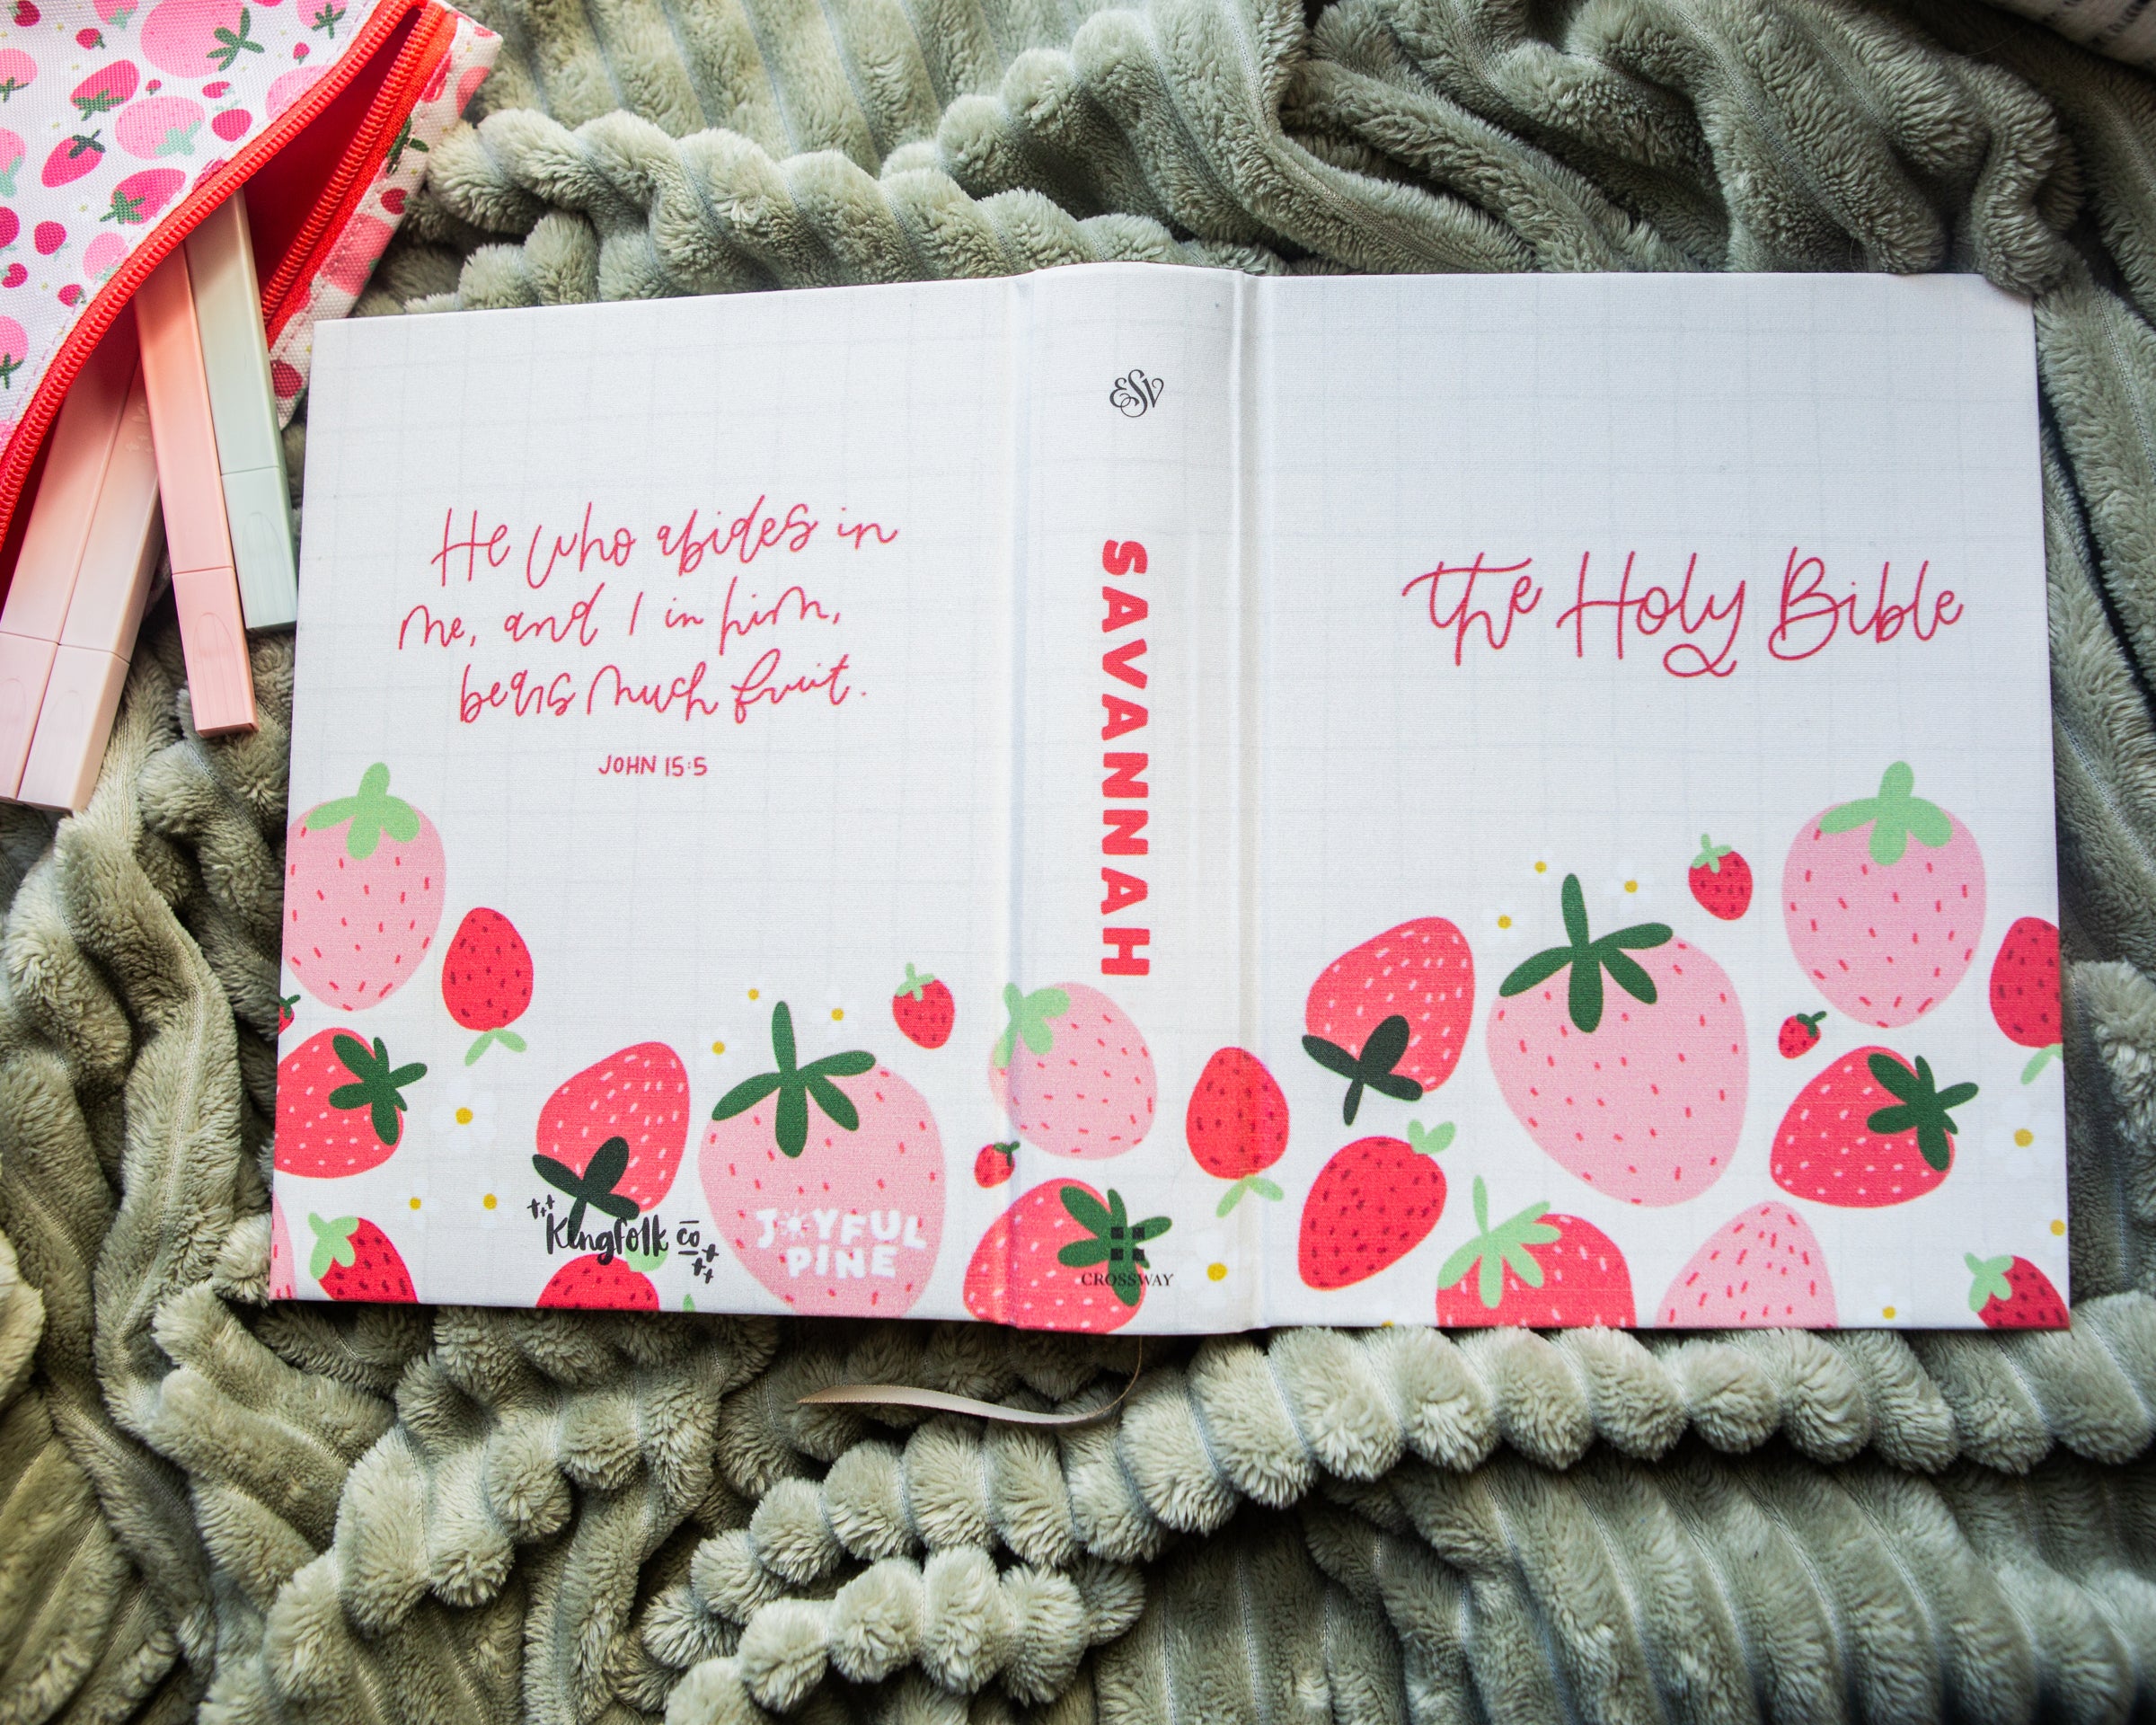 He who abides in
me, and I in him,
bears much fruit.
JOHN 15:5
Kingfolk co
JOYFUL
PINE
ESV
SAVANNAH
CROSSWAY
the Holy Bible